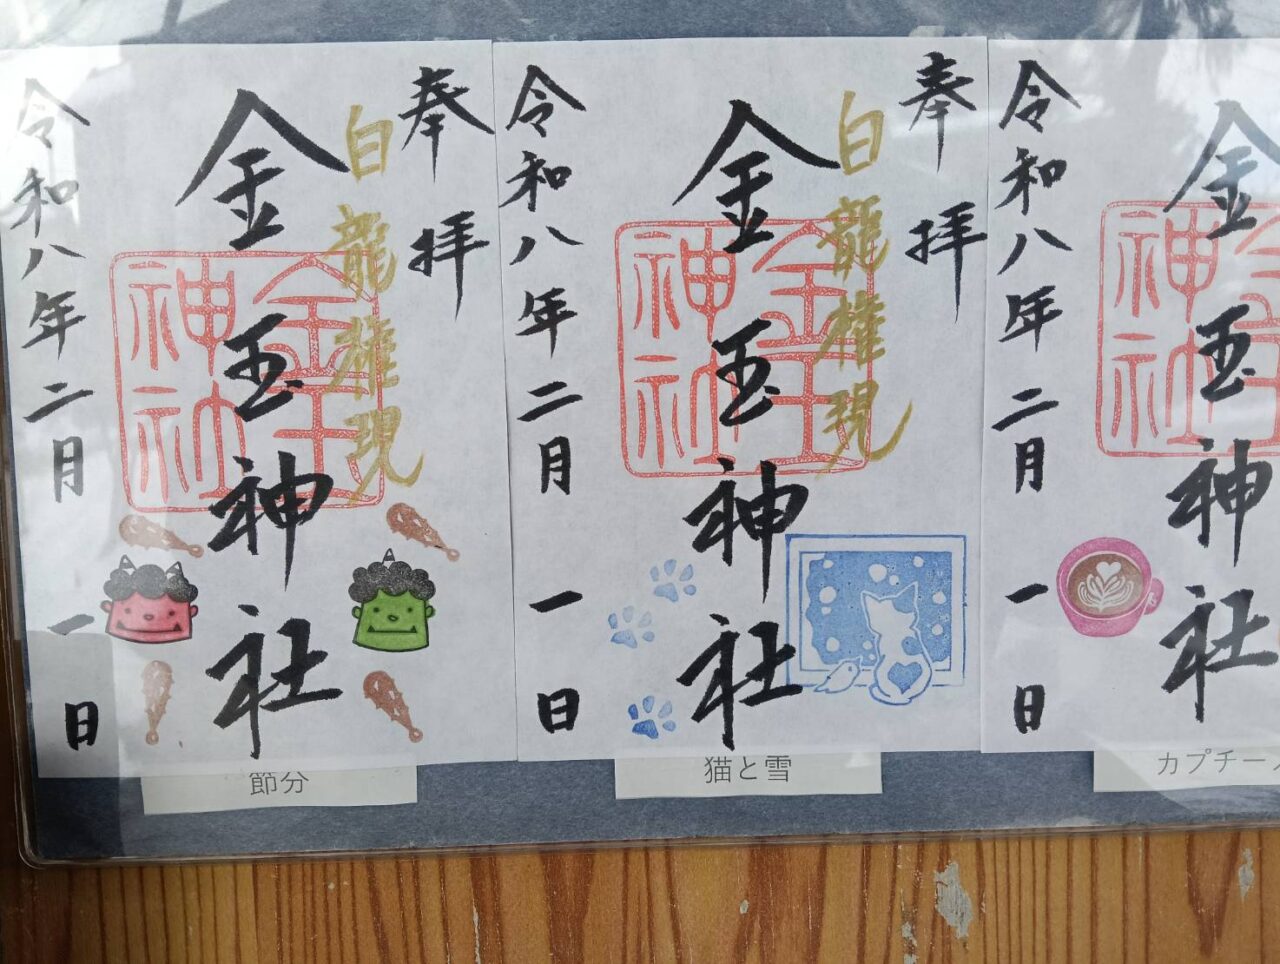 奉拝
白龍権現
金玉神社
金玉神社
令和八年二月一日
節分
奉拝
白龍権現
金玉神社
金玉神社
令和八年二月一日
猫と雪
金玉神社
神社
令和八年二月一日
カプチー